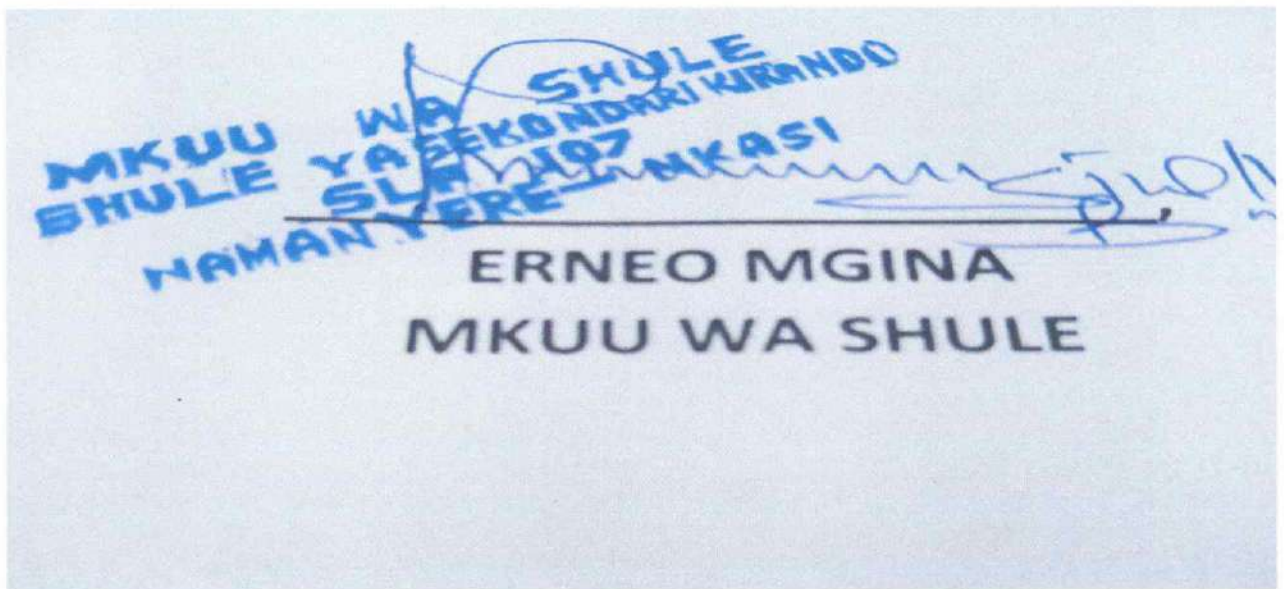 MKUU WA SHULE
SHULE YA SEKONDARI KIRANDO
SLP 107
NAMANYERE - NKASI
ERNEO MGINA
MKUU WA SHULE